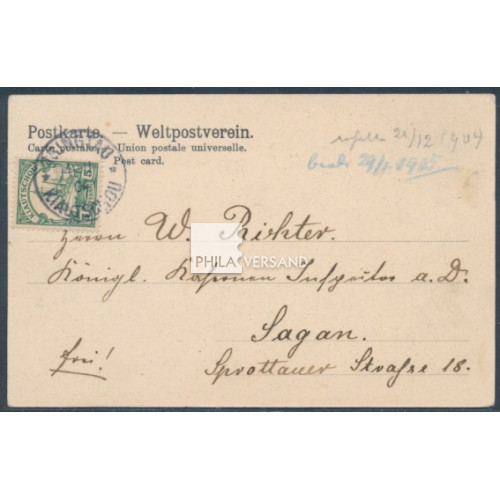 Postkarte. — Weltpostverein.
Carte postale. Union postale universelle.
Post card.
21/12 1904
29/1. 1905
TSINGTAU
KIAUTSCHOU
KIAUTSCHOU 5
Herrn W. Richter.
Königl. Kasernen Inspektor a. D.
Sagan.
frei!
Sprottauer Straße 18.
PHILA VERSAND